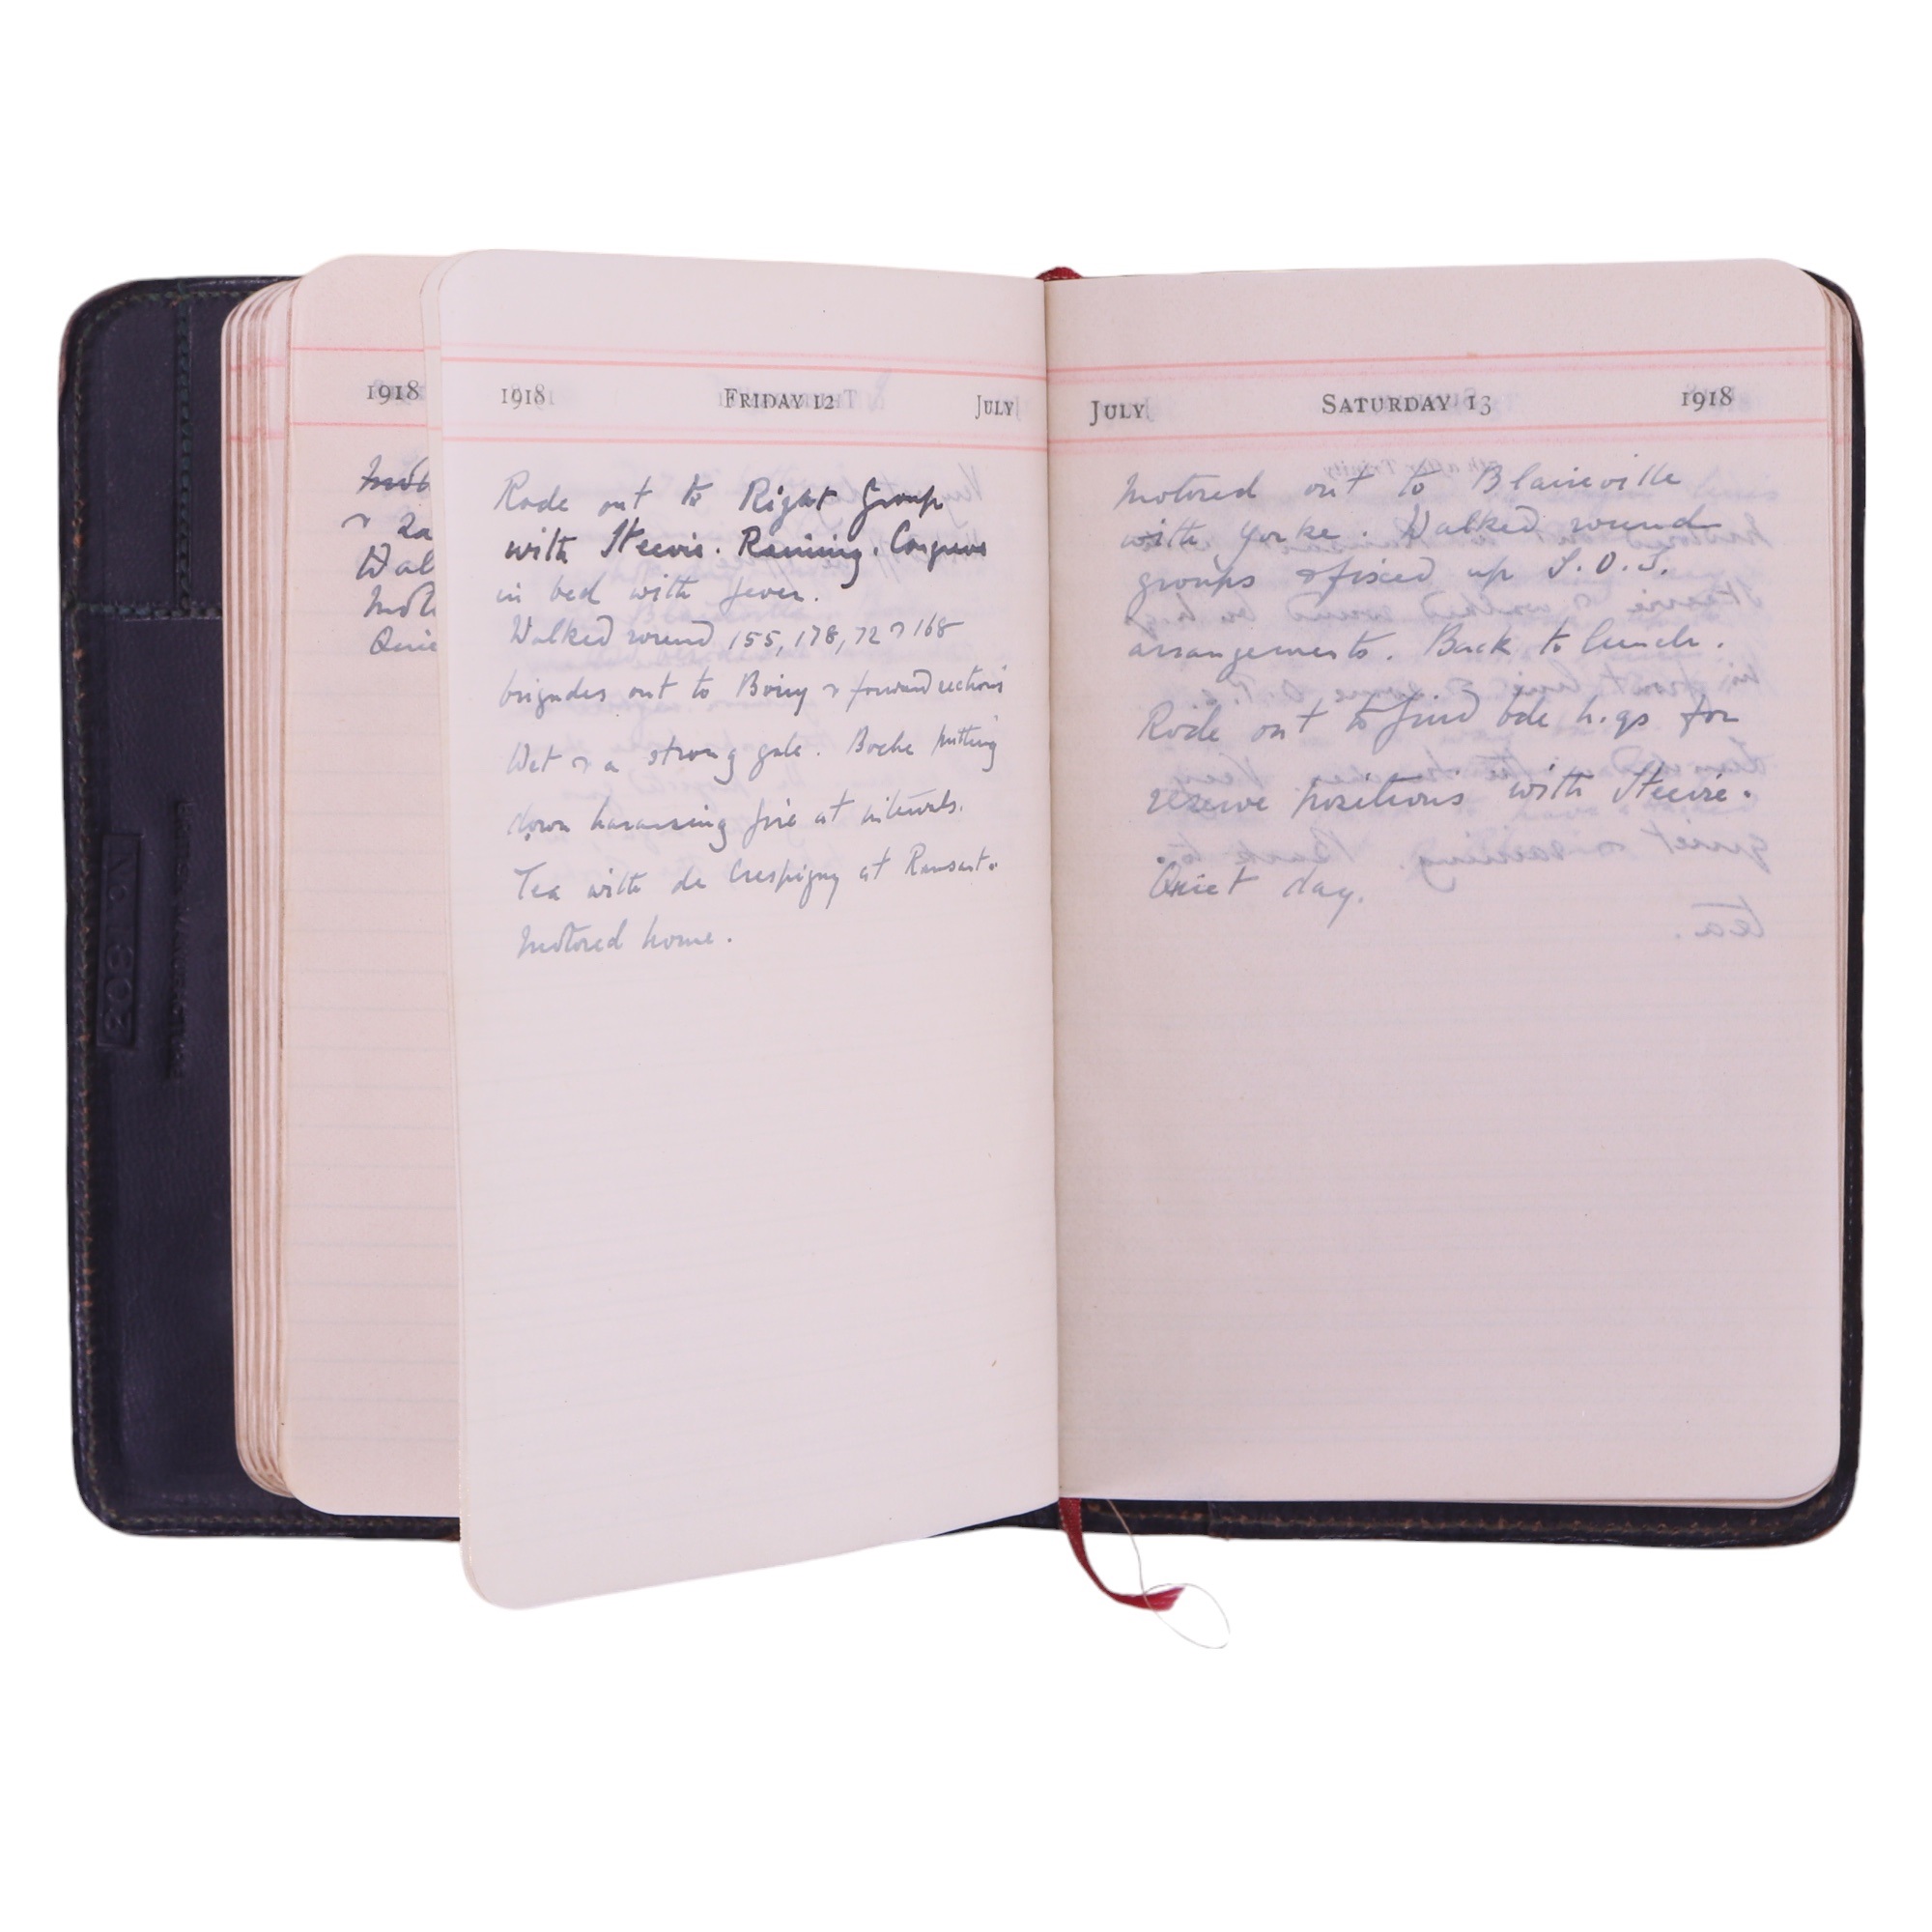 1918
1918 FRIDAY 12 JULY
Rode out to Right Group
with Steevie. Raining. Cosgrave
in bed with fever.
Walked round 155, 178, 72 & 168
brigades out to Boiry & forward sections
Wet & a strong gale. Boche putting
down harassing fire at intervals.
Tea with de Crespigny at Ransart.
Motored home.
JULY SATURDAY 13 1918
Motored out to Blaireville
with Yorke. Walked round
groups & fixed up S.O.S.
arrangements. Back to lunch.
Rode out to find bde h.qs for
reserve positions with Steevie.
Quiet day.
No. 303